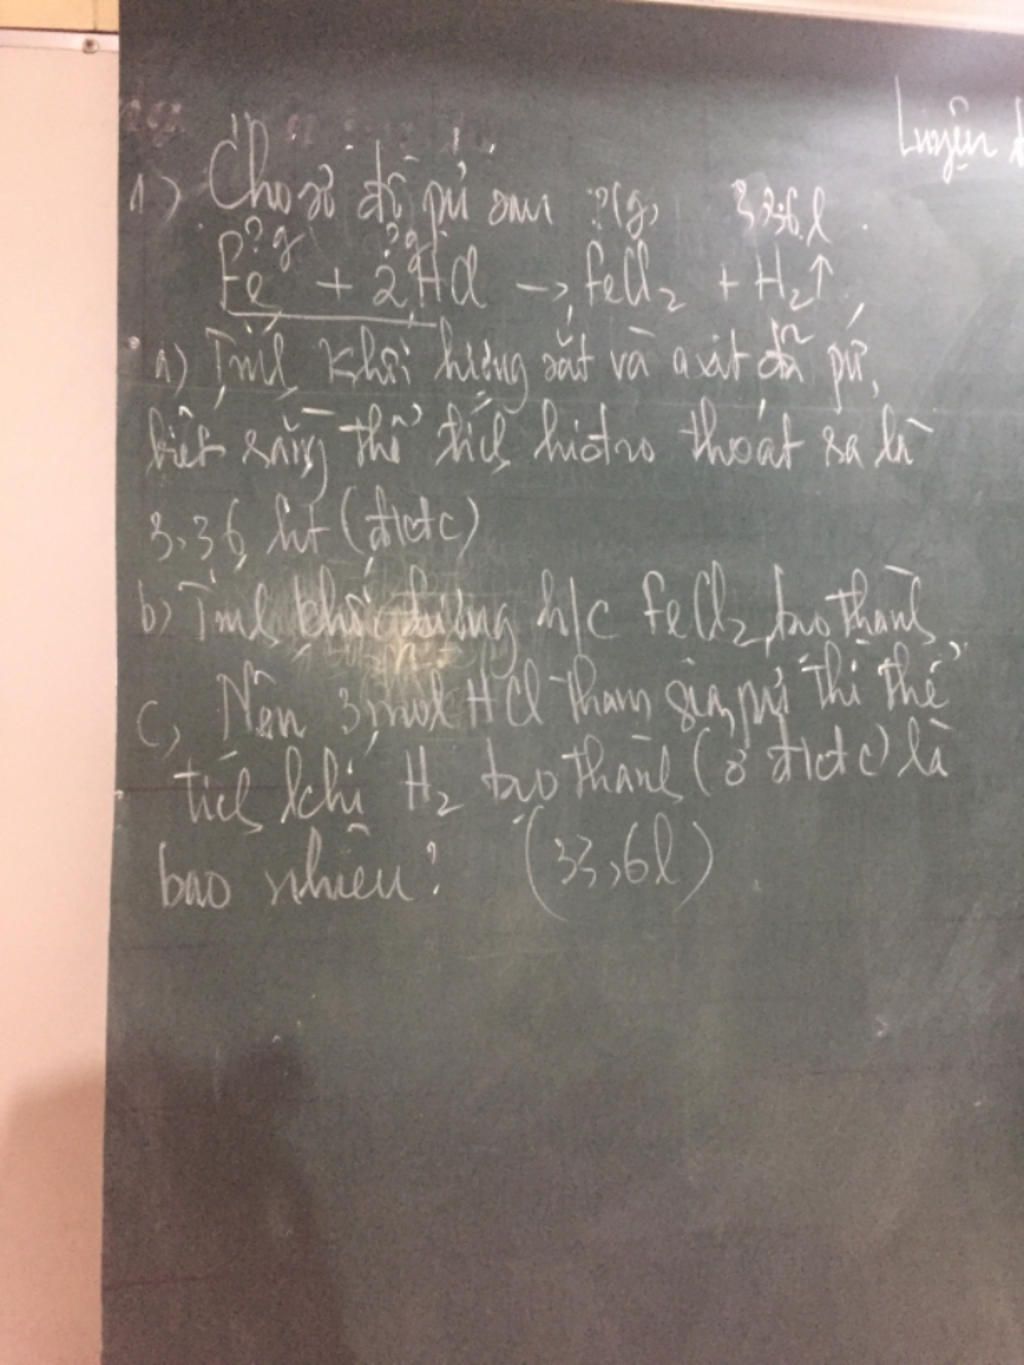 Luyện
1) Cho sơ đồ pứ sau ?(g) 3,36l
?g ?g
Fe + 2HCl → FeCl₂ + H₂↑
a) Tính khối lượng sắt và axit đã pứ,
biết rằng thể tích hiđro thoát ra là
3,36 lít (đktc)
b) Tính khối lượng h/c FeCl₂ tạo thành
c, Nếu 3 mol HCl tham gia pứ thì thể
tích khí H₂ tạo thành (ở đktc) là
bao nhiêu? (33,6l)